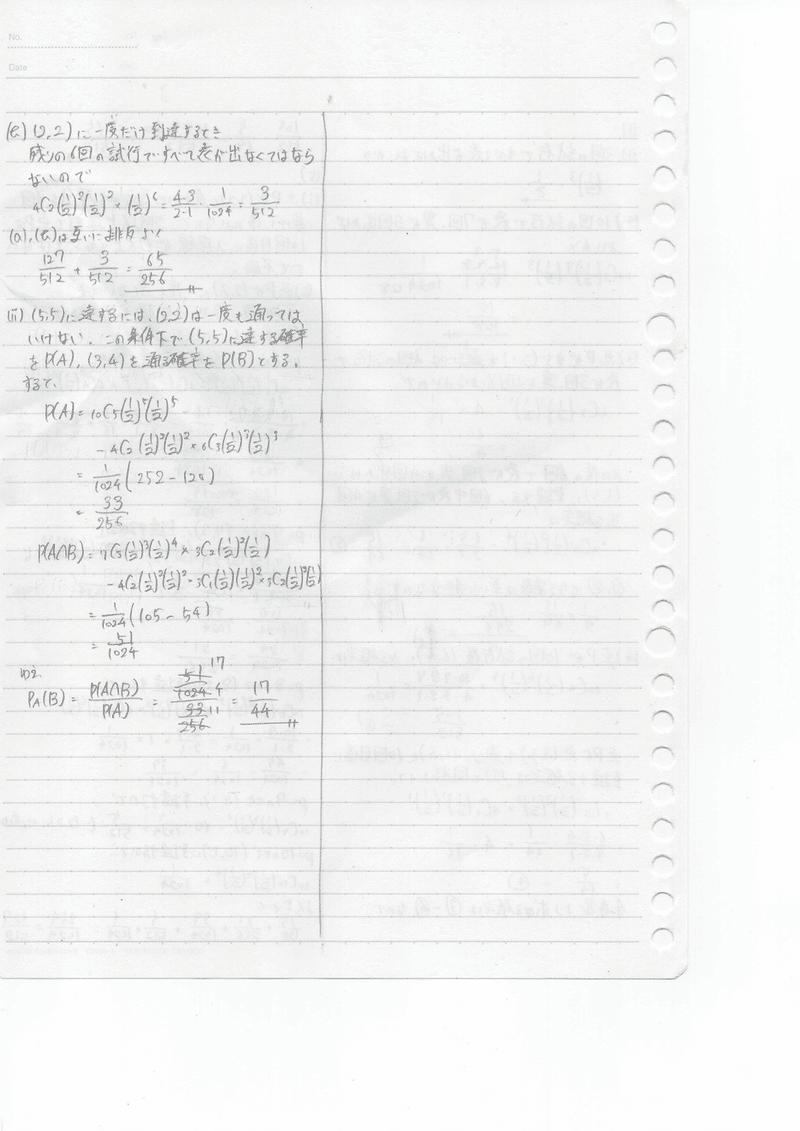 No.
Date
(e) (2,2)に一度だけ到達するとき
残りの6回の試行ですべて表が出なくてはなら
ないので
4C2(1/2)²(1/2)² × (1/2)⁶ = 4·3/2·1 · 1/1024 = 3/512
(a),(e)は互いに排反より
127/512 + 3/512 = 65/256
(ii) (5,5)に達するには、(2,2)は一度も通っては
いけない。この条件下で(5,5)に達する確率
をP(A), (3,4)を通る確率をP(B)とする。
すると、
P(A) = 10C5(1/2)⁵(1/2)⁵
- 4C2(1/2)²(1/2)² × 6C3(1/2)³(1/2)³
= 1/1024 (252 - 120)
= 33/256
P(A∩B) = 7C3(1/2)³(1/2)⁴ × 3C2(1/2)²(1/2)
- 4C2(1/2)²(1/2)² · 3C1(1/2)(1/2)² × 3C2(1/2)²(1/2)
= 1/1024 (105 - 54)
= 51/1024
ゆえ
PA(B) = P(A∩B)/P(A) = 51/1024 / 33/256 = 17/44